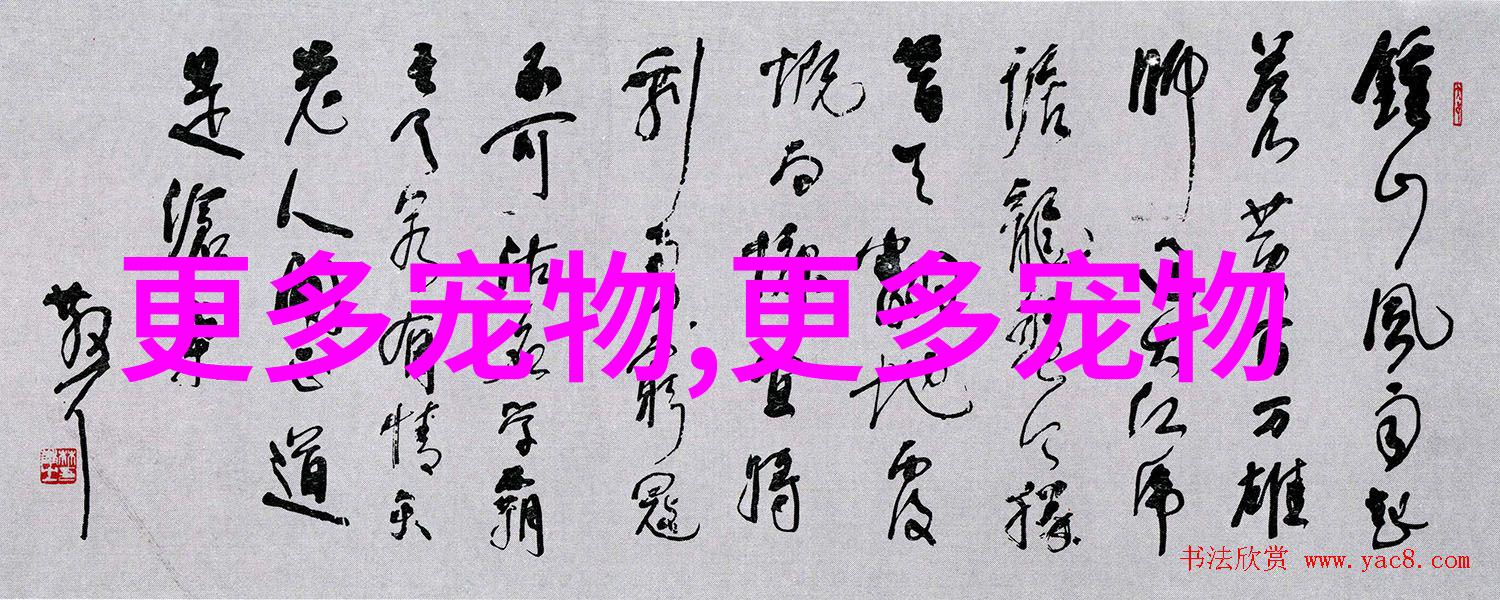 鍾山風雨起
蒼黃百万雄
師過大江虎
踞龍盤今勝
昔天翻地覆
慨而慷宜將
剩勇追窮寇
不可沽名学霸
王天若有情天
老人間正道
是滄桑
更多宠物,更多宠物
书法欣赏 www.yac8.com